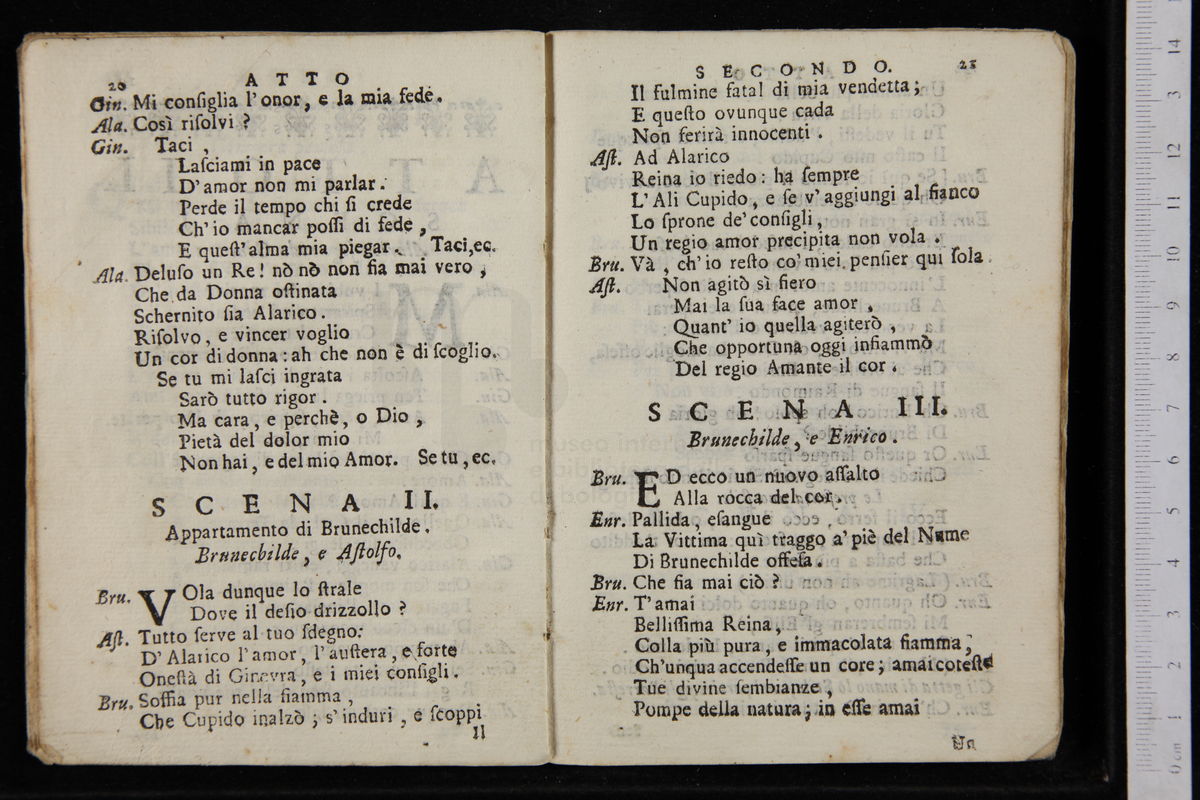 20 ATTO
Gin. Mi conſiglia l'onor, e la mia fede.
Ala. Così riſolvi ?
Gin. Taci ,
Laſciami in pace
D'amor non mi parlar.
Perde il tempo chi ſi crede
Ch'io mancar poſſi di fede ,
E queſt'alma mia piegar. Taci,ec.
Ala. Deluſo un Re! nò nò non fia mai vero ,
Che da Donna oſtinata
Schernito ſia Alarico.
Riſolvo, e vincer voglio
Un cor di donna: ah che non è di ſcoglio.
Se tu mi laſci ingrata
Sarò tutto rigor.
Ma cara, e perchè, o Dio ,
Pietà del dolor mio
Non hai, e del mio Amor. Se tu, ec.
SCENA II.
Appartamento di Brunechilde.
Brunechilde, e Aſtolfo.
Bru. VOla dunque lo ſtrale
Dove il deſio drizzollo ?
Aſt. Tutto ſerve al tuo ſdegno:
D'Alarico l'amor, l'auſtera, e forte
Oneſtà di Ginevra, e i miei conſigli.
Bru. Soffia pur nella fiamma ,
Che Cupido inalzò ; s'induri , e ſcoppi
Il
SECONDO. 21
Il fulmine fatal di mia vendetta ;
E queſto ovunque cada
Non ferirà innocenti .
Aſt. Ad Alarico
Reina io riedo: ha ſempre
L'Ali Cupido, e ſe v'aggiungi al fianco
Lo ſprone de'conſigli,
Un regio amor precipita non vola .
Bru. Và, ch'io reſto co'miei penſier quì ſola.
Aſt. Non agitò sì fiero
Mai la ſua face amor ,
Quant'io quella agiterò ,
Che opportuna oggi infiammò
Del regio Amante il cor .
SCENA III.
Brunechilde, e Enrico.
Bru. ED ecco un nuovo aſſalto
Alla rocca del cor.
Enr. Pallida, eſangue
La Vittima quì traggo a'piè del Nume
Di Brunechilde offeſa.
Bru. Che fia mai ciò ?
Enr. T'amai
Belliſſima Reina,
Colla più pura, e immacolata fiamma ,
Ch'unqua accendeſſe un core ; amai coteſte
Tue divine ſembianze ,
Pompe della natura ; in eſſe amai
Un
museo inter
e bibliot
di bologn
0 cm 1 2 3 4 5 6 7 8 9 10 11 12 3 14